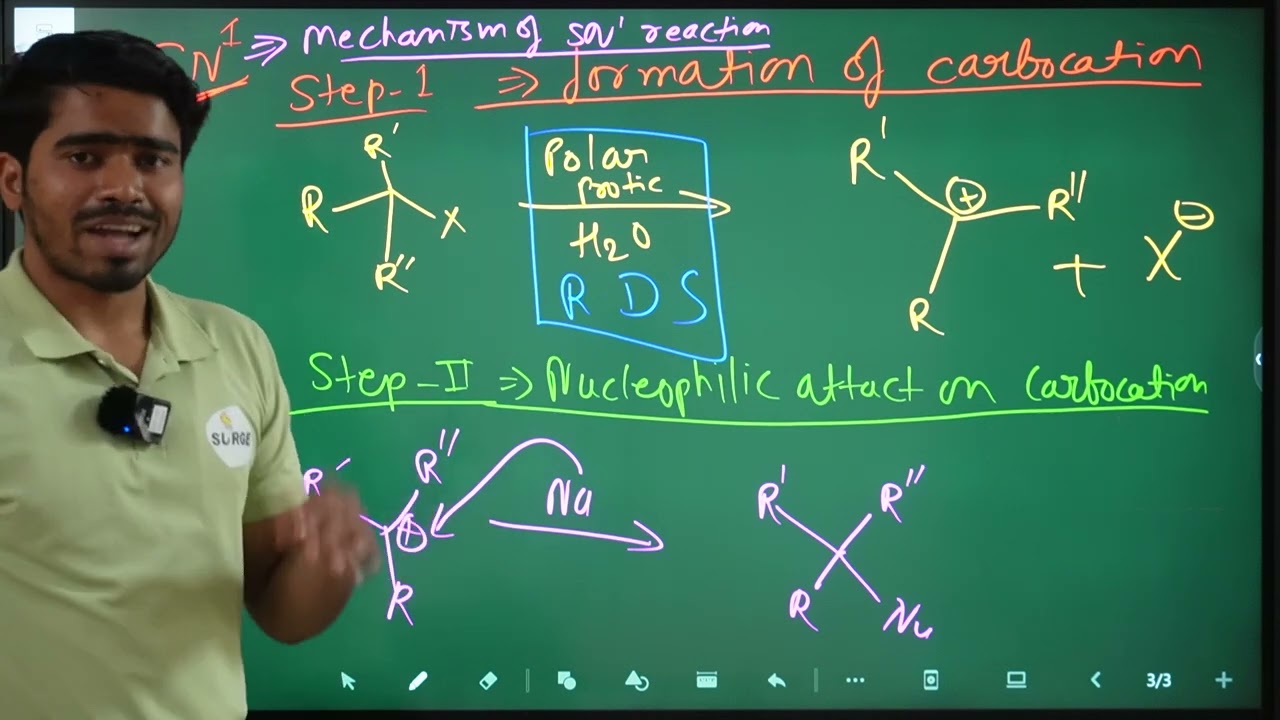 SN¹ ⇒ Mechanism of SN¹ reaction
Step-1 ⇒ formation of carbocation
R' R X R''
Polar protic
H₂O
RDS
R' ⊕ R'' R + X⊖
Step-II ⇒ Nucleophilic attact on carbocation
R' R'' ⊕ R
Nu
R' R'' R Nu
SURGE
3/3